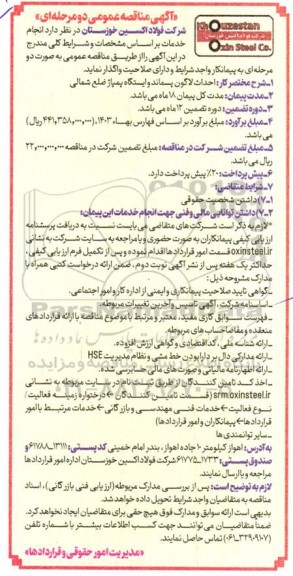 «آگهی مناقصه عمومی دو مرحله ای»
Khouzestan
Oxin Steel Co.
شرکت فولاد اکسین خوزستان در نظر دارد انجام
خدمات بر اساس مشخصات و شرایط کلی مندرج
در این آگهی را از طریق مناقصه عمومی به صورت دو
مرحله ای به پیمانکار واجد شرایط و دارای صلاحیت واگذار نماید.
۱-شرح مختصر کار: احداث لاگون پسماند و ایستگاه پمپاژ ضلع شمالی
۲-مدت پیمان: مدت کل پیمان ۱۸ ماه می باشد.
۳-دوره تضمین: دوره تضمین ۱۲ ماه می باشد.
۴-مبلغ برآورد: مبلغ برآورد بر اساس فهارس بهاء ۱۴۰۳، ریال
می باشد.
۵-مبلغ تضمین شرکت در مناقصه: مبلغ تضمین شرکت در مناقصه
ریال می باشد.
۶-پیش پرداخت: ۲۰٪ پیش پرداخت دارد.
۷-شرایط متقاضی:
۷-۱ داشتن شخصیت حقوقی
۷-۲ داشتن توانایی مالی و فنی جهت انجام خدمات این پیمان:
*لازم به ذکر است شرکت های متقاضی می بایست نسبت به دریافت پرسشنامه
ارزیابی کیفی پیمانکاران به صورت حضوری و یا مراجعه به سایت شرکت به نشانی
oxinsteel.ir قسمت امور قراردادها اقدام نموده و پس از تکمیل فرم ارزیابی کیفی،
حداکثر یک هفته پس از نشر آگهی نوبت دوم، ضمن ارائه درخواست کتبی همراه با
مدارک مشروحه ذیل:
-گواهی تایید صلاحیت پیمانکاری و ایمنی از اداره کار و امور اجتماعی.
-اساسنامه شرکت، آگهی تاسیس و آخرین تغییرات مربوطه.
-فهرست سوابق کاری مفید، معتبر و مرتبط با موضوع مناقصه با ارائه قراردادهای
منعقده و مفاصاحساب های مربوطه.
-ارائه شناسه ملی، کد اقتصادی و گواهی ارزش افزوده.
-ارائه مدارکی دال بر دارا بودن خط مشی و نظام مدیریت HSE
-ارائه اظهارنامه مالیاتی و صورت های مالی حسابرسی شده.
-اخذ کد تامین کنندگان از طریق ثبت نام در سایت مربوطه به نشانی
srm.oxinsteel.ir (قسمت تامین کنندگان ← درخواره زمینه فعالیت/
نوع فعالیت ← خدمات فنی مهندسی و بازرگانی ← خدمات مرتبط با امور
قراردادها ← پیمانکاران و امور قراردادها)
-سایر توانمندی ها
به آدرس: اهواز کیلومتر ۱۰ جاده اهواز، بندر امام خمینی کدپستی: و
صندوق پستی: شرکت فولاد اکسین خوزستان اداره امور قراردادها
مراجعه و یا ارسال نمایند.
لازم به توضیح است: پس از بررسی مدارک مربوطه (ارزیابی فنی بازرگانی)، اسناد
مناقصه به متقاضیان واجد شرایط تحویل داده خواهد شد.
بدیهی است ارائه سوابق و مدارک فوق هیچ حقی برای متقاضیان ایجاد نخواهد کرد.
ضمنا متقاضیان می توانند جهت کسب اطلاعات بیشتر با شماره تلفن
(۰۶۱-۳۲۹۰۹۱۰۷) تماس حاصل نمایند.
«مدیریت امور حقوقی و قراردادها»